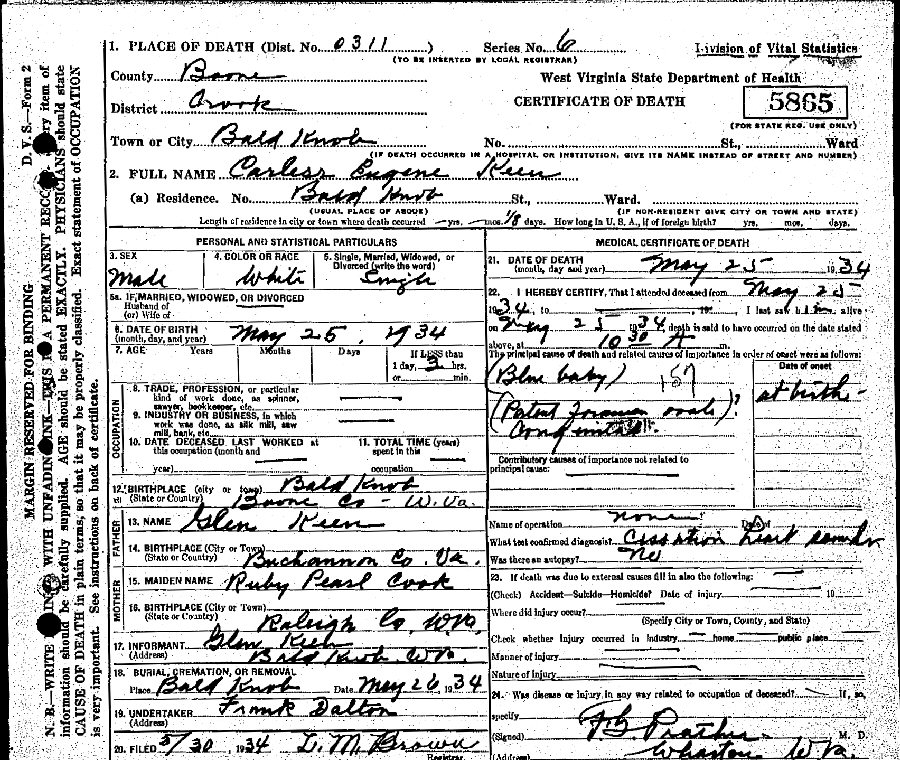 1. PLACE OF DEATH (Dist. No. 0311 ) Series No. 6 Division of Vital Statistics
(TO BE INSERTED BY LOCAL REGISTRAR)
County Boone West Virginia State Department of Health
District Crook CERTIFICATE OF DEATH 5865
(FOR STATE REG. USE ONLY)
Town or City Bald Knob No. St., Ward
(IF DEATH OCCURRED IN A HOSPITAL OR INSTITUTION, GIVE ITS NAME INSTEAD OF STREET AND NUMBER)
2. FULL NAME Carless Eugene Keen
(a) Residence. No. Bald Knob St., Ward.
(USUAL PLACE OF ABOVE) (IF NON-RESIDENT GIVE CITY OR TOWN AND STATE)
Length of residence in city or town where death occurred yrs. mos. 1/8 days. How long in U. S. A., if of foreign birth? yrs. mos. days.
PERSONAL AND STATISTICAL PARTICULARS
3. SEX 4. COLOR OR RACE 5. Single, Married, Widowed, or
Divorced (write the word)
Male White Single
5a. IF MARRIED, WIDOWED, OR DIVORCED
Husband of
(or) Wife of
6. DATE OF BIRTH May 25, 1934
(month, day, and year)
7. AGE Years Months Days If LESS than
1 day, 3 hrs.
or min.
OCCUPATION
8. TRADE, PROFESSION, or particular
kind of work done, as spinner,
sawyer, bookkeeper, etc.
9. INDUSTRY OR BUSINESS, in which
work was done, as silk mill, saw
mill, bank, etc.
10. DATE DECEASED LAST WORKED at 11. TOTAL TIME (years)
this occupation (month and spent in this
year) occupation
12. BIRTHPLACE (city or town) Bald Knob
(State or Country) Boone Co - W.Va.
FATHER
13. NAME Glen Keen
14. BIRTHPLACE (City or Town)
(State or Country) Buchannon Co. Va.
MOTHER
15. MAIDEN NAME Ruby Pearl Cook
16. BIRTHPLACE (City or Town)
(State or Country) Raleigh Co. W.Va.
17. INFORMANT Glen Keen
(Address) Bald Knob W.Va.
18. BURIAL, CREMATION, OR REMOVAL
Place Bald Knob Date May 26, 1934
19. UNDERTAKER Frank Dalton
(Address)
20. FILED 5/30, 1934 L. M. Brown
Registrar.
MEDICAL CERTIFICATE OF DEATH
21. DATE OF DEATH May 25 1934
(month, day and year)
22. I HEREBY CERTIFY, That I attended deceased from May 25
1934, to , 19 . I last saw him alive
on May 25 1934, death is said to have occurred on the date stated
above, at 10 30 A m.
The principal cause of death and related causes of importance in order of onset were as follows:
Date of onset
(Blue baby) 157 at birth-
(Patent Foramen ovale)?
Congenital
Contributory causes of importance not related to
principal cause:
Name of operation none Date of
What test confirmed diagnosis? Cessation heart sounds
Was there an autopsy? No
23. If death was due to external causes fill in also the following:
(Check) Accident—Suicide—Homicide? Date of injury 19
Where did injury occur?
(Specify City or Town, County, and State)
Check whether Injury occurred in Industry home public place
Manner of injury
Nature of injury
24. Was disease or injury in any way related to occupation of deceased? If so,
specify
(Signed) Prather M. D.
(Address) Wharton W Va.
MARGIN RESERVED FOR BINDING D. V. S.—Form 2
N. B.—WRITE WITH UNFADING INK—THIS IS A PERMANENT RECORD. Every item of
information should be carefully supplied. AGE should be stated EXACTLY. PHYSICIANS should state
CAUSE OF DEATH in plain terms, so that it may be properly classified. Exact statement of OCCUPATION
is very important. See instructions on back of certificate.